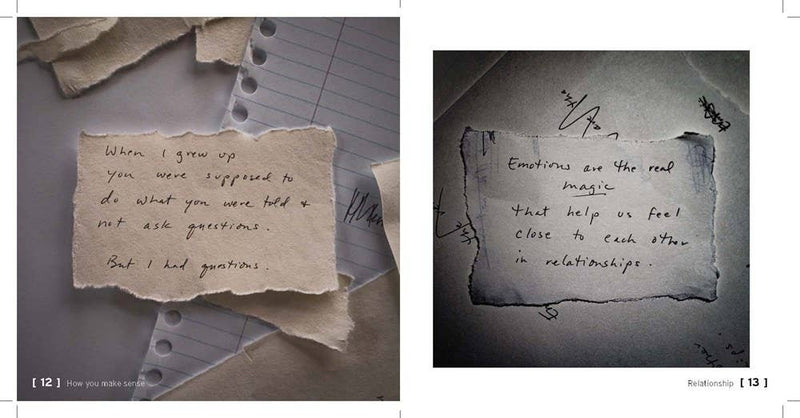 When I grew up
you were supposed to
do what you were told +
not ask questions.
But I had questions.
[ 12 ] How you make sense
the
are
Emotions are the real
magic
that help us feel
close to each other
in relationships.
Relationship [ 13 ]